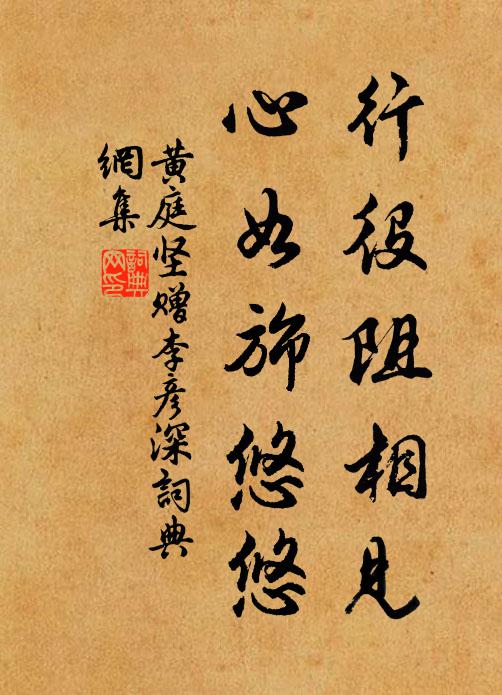 行役阻相見
心如旆悠悠
黄庭坚赠李彦深詞典
網集
詞典
网印